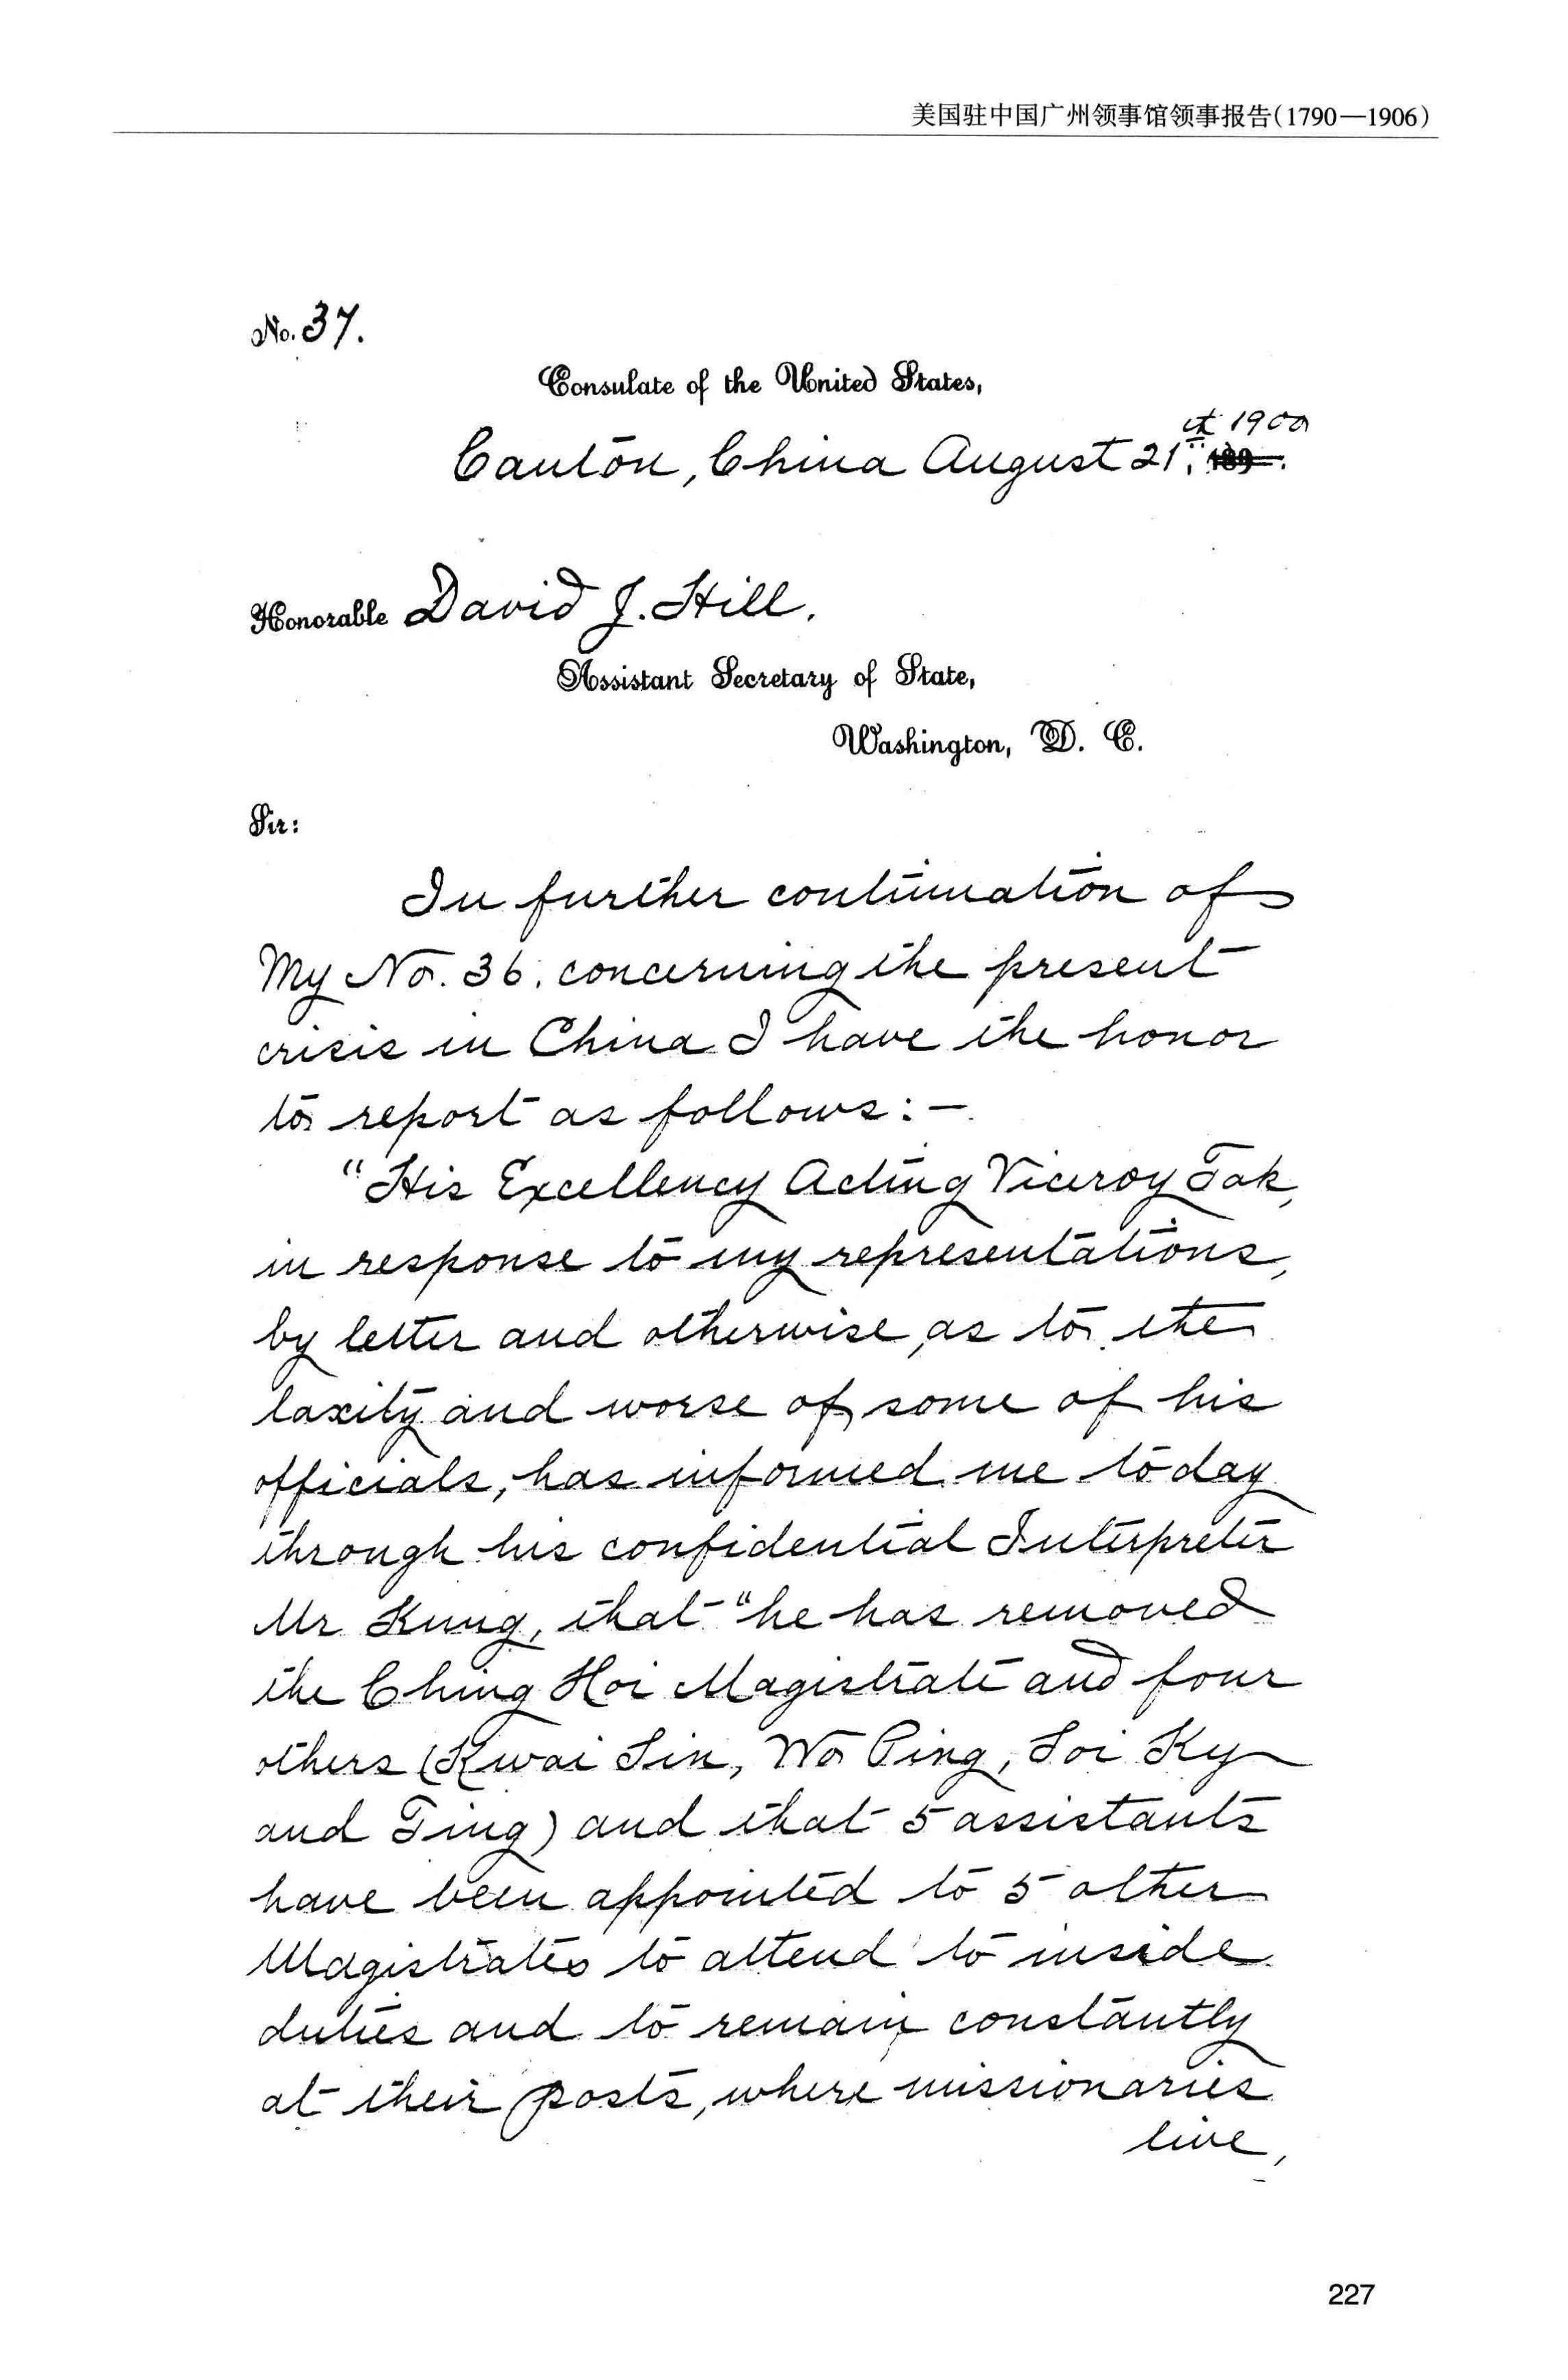 美国驻中国广州领事馆领事报告(1790—1906)
No. 37.
Consulate of the United States,
Canton, China August 21st, 1900
Honorable David J. Hill.
Assistant Secretary of State,
Washington, D. C.
Sir:
In further continuation of
My No. 36. concerning the present
crisis in China I have the honor
to report as follows:—
"His Excellency Acting Viceroy Tak,
in response to my representations,
by letter and otherwise, as to the
laxity and worse of some of his
officials, has informed me to day
through his confidential Interpreter
Mr Kung, that "he has removed
the Ching Hoi Magistrate and four
others (Kwai Sin, Wo Ping, Loi Ky
and Ting) and that 5 assistants
have been appointed to 5 other
Magistrates to attend to inside
duties and to remain constantly
at their posts, where missionaries
live,
227